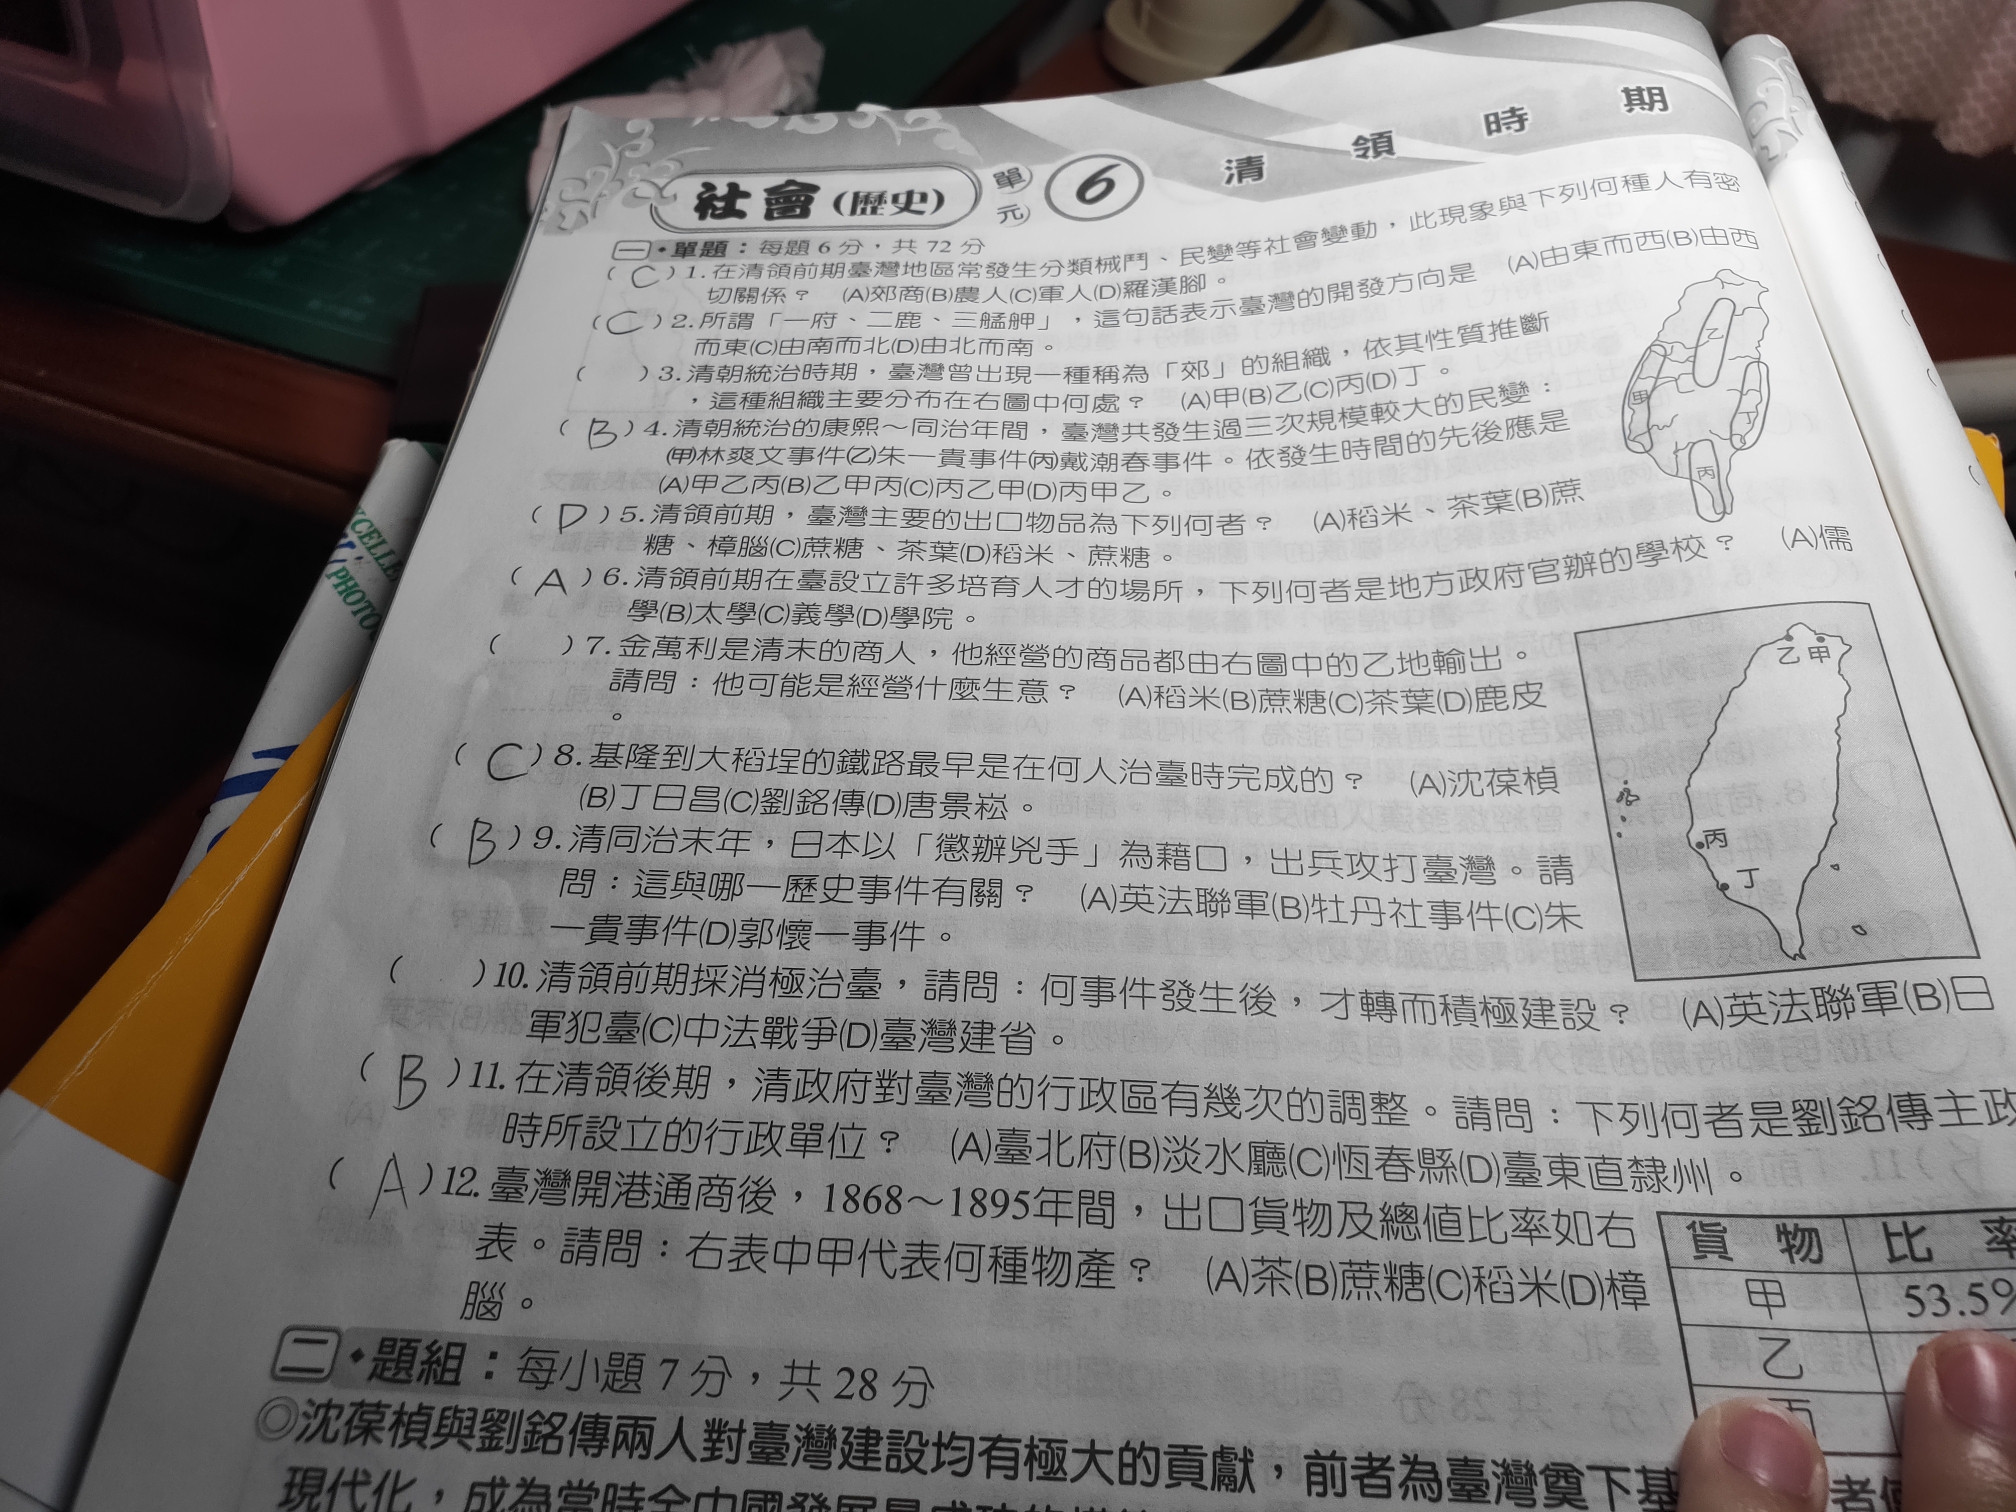 社會(歷史) 單元 6 清領時期
一・單題：每題 6 分，共 72 分
( C ) 1.在清領前期臺灣地區常發生分類械鬥、民變等社會變動，此現象與下列何種人有密
切關係？ (A)郊商(B)農人(C)軍人(D)羅漢腳。
( C ) 2.所謂「一府、二鹿、三艋舺」，這句話表示臺灣的開發方向是 (A)由東而西(B)由西
而東(C)由南而北(D)由北而南。
( ) 3.清朝統治時期，臺灣曾出現一種稱為「郊」的組織，依其性質推斷
，這種組織主要分布在右圖中何處？ (A)甲(B)乙(C)丙(D)丁。
( B ) 4.清朝統治的康熙～同治年間，臺灣共發生過三次規模較大的民變：
(甲)林爽文事件(乙)朱一貴事件(丙)戴潮春事件。依發生時間的先後應是
(A)甲乙丙(B)乙甲丙(C)丙乙甲(D)丙甲乙。
乙
甲
丁
丙
( D ) 5.清領前期，臺灣主要的出口物品為下列何者？ (A)稻米、茶葉(B)蔗
糖、樟腦(C)蔗糖、茶葉(D)稻米、蔗糖。
( A ) 6.清領前期在臺設立許多培育人才的場所，下列何者是地方政府官辦的學校？ (A)儒
學(B)太學(C)義學(D)學院。
( ) 7.金萬利是清末的商人，他經營的商品都由右圖中的乙地輸出。
請問：他可能是經營什麼生意？ (A)稻米(B)蔗糖(C)茶葉(D)鹿皮
。
乙 甲
丙
丁
( C ) 8.基隆到大稻埕的鐵路最早是在何人治臺時完成的？ (A)沈葆楨
(B)丁日昌(C)劉銘傳(D)唐景崧。
( B ) 9.清同治末年，日本以「懲辦兇手」為藉口，出兵攻打臺灣。請
問：這與哪一歷史事件有關？ (A)英法聯軍(B)牡丹社事件(C)朱
一貴事件(D)郭懷一事件。
( ) 10.清領前期採消極治臺，請問：何事件發生後，才轉而積極建設？ (A)英法聯軍(B)日
軍犯臺(C)中法戰爭(D)臺灣建省。
( B ) 11.在清領後期，清政府對臺灣的行政區有幾次的調整。請問：下列何者是劉銘傳主政
時所設立的行政單位？ (A)臺北府(B)淡水廳(C)恆春縣(D)臺東直隸州。
( A ) 12.臺灣開港通商後，1868～1895年間，出口貨物及總值比率如右
表。請問：右表中甲代表何種物產？ (A)茶(B)蔗糖(C)稻米(D)樟
腦。
貨物 比率
甲 53.5%
乙
丙
二・題組：每小題 7 分，共 28 分
◎沈葆楨與劉銘傳兩人對臺灣建設均有極大的貢獻，前者為臺灣奠下基
現代化，成為當時全中國發展
PHOTO